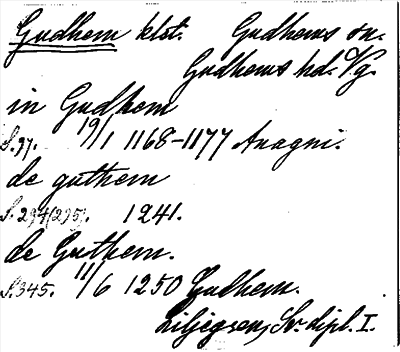 Gudhem klst. Gudhems sn.
Gudhems hd. Vg.
in Gudhem
S.97. 19/1 1168-1177 Anagni.
de guthem
S. 294(295). 1241.
de Guthem.
S.345. 11/6 1250 Gudhem.
Liljegren, Sv. dipl. I.